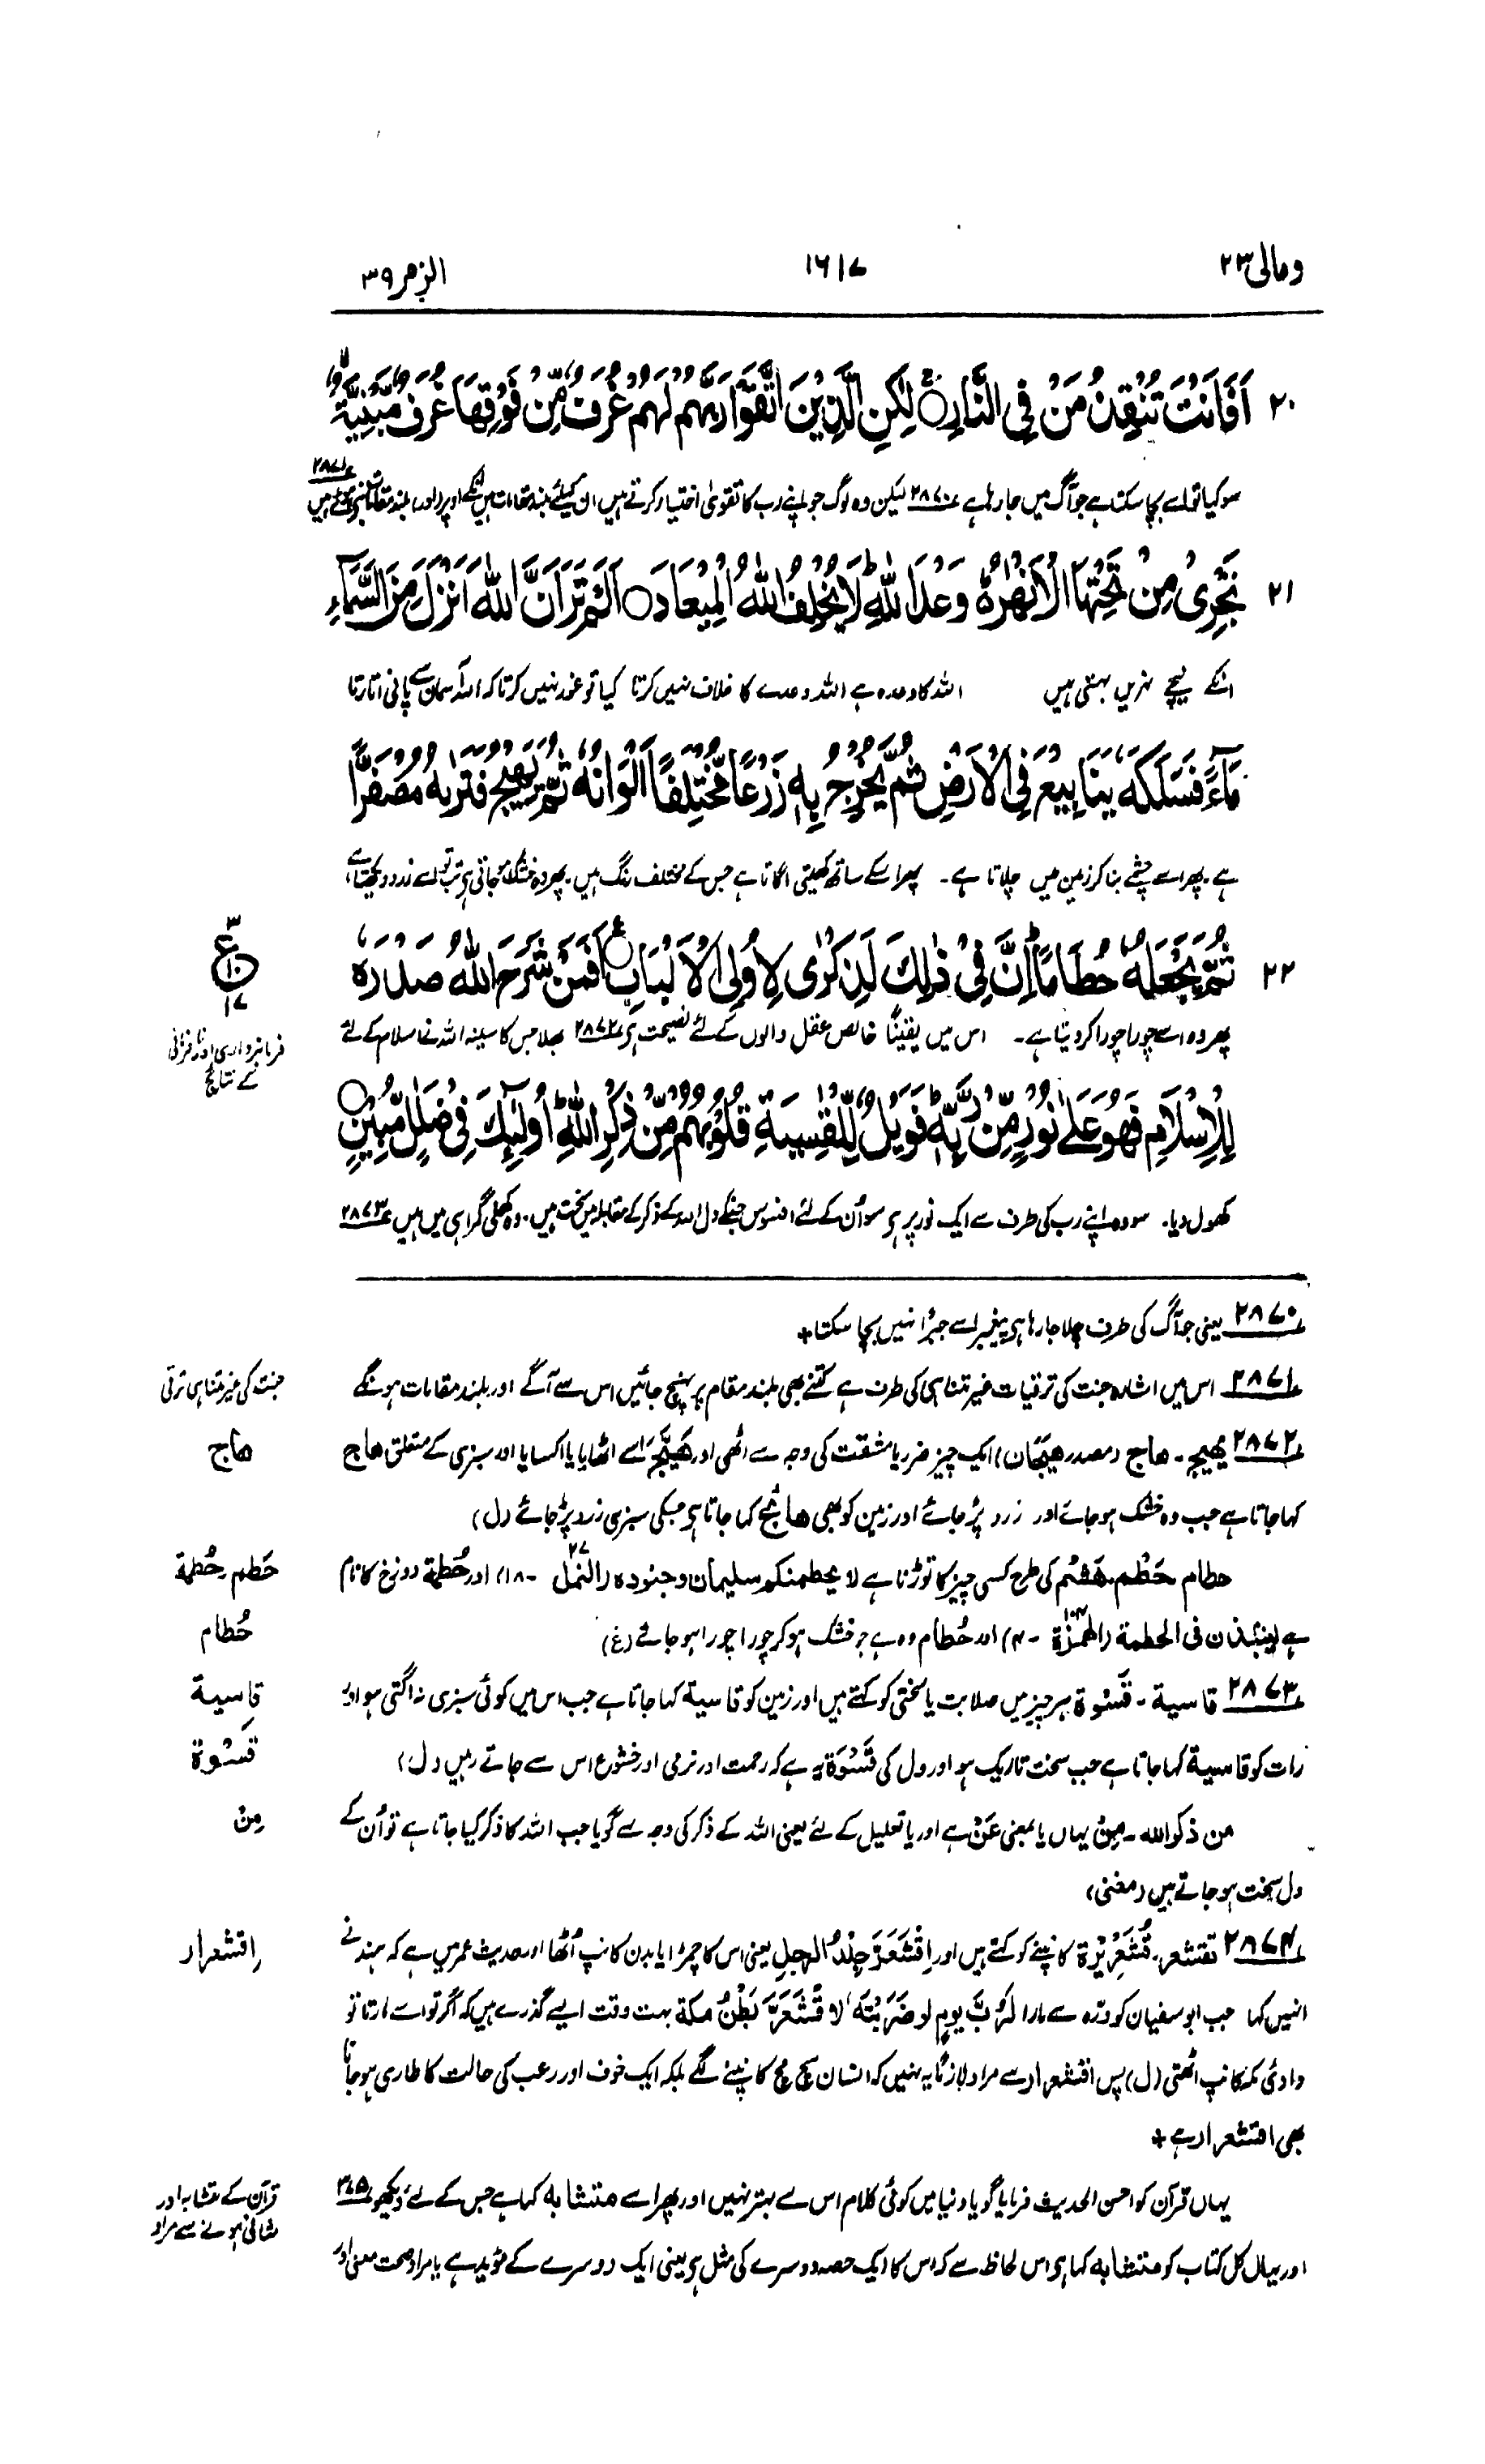 ومالی ۲۳
۱۶۱۷
الزمر ۳۹
۲۰ اَفَاَنْتَ تُنْقِذُ مَنْ فِی النَّارِ ۝ لٰکِنِ الَّذِیْنَ اتَّقَوْا رَبَّهُمْ لَهُمْ غُرَفٌ مِّنْ فَوْقِهَا غُرَفٌ مَّبْنِیَّةٌ
سو کیا تو اسے بچا سکتا ہے جو آگ میں جا رہا ہے ۲۸۷۰ لیکن وہ لوگ جو اپنے رب کا تقویٰ اختیار کرتے ہیں ان کیلئے بلند مقامات ہیں انکے اوپر (اور) بلند مقامات بنے ہوئے ہیں ۲۸۷۱
۲۱ تَجْرِیْ مِنْ تَحْتِهَا الْاَنْهٰرُ وَعْدَ اللّٰهِ لَا یُخْلِفُ اللّٰهُ الْمِیْعَادَ ۝ اَلَمْ تَرَ اَنَّ اللّٰهَ اَنْزَلَ مِنَ السَّمَآءِ
انکے نیچے نہریں بہتی ہیں اللہ کا وعدہ ہے اللہ وعدے کا خلاف نہیں کرتا کیا تو غور نہیں کرتا کہ اللہ آسمان سے پانی اتارتا
مَآءً فَسَلَکَهٗ یَنَابِیْعَ فِی الْاَرْضِ ثُمَّ یُخْرِجُ بِهٖ زَرْعًا مُّخْتَلِفًا اَلْوَانُهٗ ثُمَّ یَهِیْجُ فَتَرٰىهُ مُصْفَرًّا
ہے۔ پھر اسے چشمے بنا کر زمین میں چلاتا ہے۔ پھر اسکے ساتھ کھیتی اگاتا ہے جس کے مختلف رنگ ہیں۔ پھر وہ خشک ہوجاتی ہے تب تو اسے زرد دیکھتا ہے،
۲۲ ثُمَّ یَجْعَلُهٗ حُطَامًا اِنَّ فِیْ ذٰلِکَ لَذِکْرٰی لِاُولِی الْاَلْبَابِ ۝ اَفَمَنْ شَرَحَ اللّٰهُ صَدْرَهٗ
۳
ع
۱۰
۱۷
پھر وہ اسے چورا چورا کر دیتا ہے۔ اس میں یقیناً خالص عقل والوں کے لئے نصیحت ہے ۲۸۷۲ بھلا جس کا سینہ اللہ نے اسلام کے لئے
فرمانبرداری اور نافرمانی
کے نتائج
لِلْاِسْلَامِ فَهُوَ عَلٰی نُوْرٍ مِّنْ رَّبِّهٖ فَوَیْلٌ لِّلْقٰسِیَةِ قُلُوْبُهُمْ مِّنْ ذِکْرِ اللّٰهِ اُولٰٓئِکَ فِیْ ضَلٰلٍ مُّبِیْنٍ ۝
کھول دیا۔ سو وہ اپنے رب کی طرف سے ایک نور پر ہے سو اُن کے لئے افسوس جنکے دل اللہ کے ذکر کے مقابلہ میں سخت ہیں۔ وہ کھلی گمراہی میں ہیں ۲۸۷۳
۲۸۷۰ یعنی جو آگ کی طرف چلا جا رہا ہے پیغمبر اسے جبراً نہیں بچا سکتا+
۲۸۷۱ اس میں اشارہ جنت کی ترقیات غیر متناہی کی طرف ہے کتنے بھی بلند مقام پر پہنچ جائیں اس سے آگے اور بلند مقامات ہونگے
جنت کی غیر متناہی ترقی
۲۸۷۲ یھیج۔ ھاج (مصدر ھَیَجَان) ایک چیز ضرر یا مشقت کی وجہ سے اٹھی اور ھَیَّجَ اسے اٹھایا یا اکسایا اور سبزی کے متعلق ھاج
ھاج
کہا جاتا ہے جب وہ خشک ہوجائے اور زرد پڑ جائے اور زمین کو بھی ھائج کہا جاتا ہے جسکی سبزی زرد پڑ جائے (ل)
حطام حَطْم۔ ھَشْم کی طرح کسی چیز کا توڑنا ہے لا یحطمنکم سلیمان وجنودہ (النمل ۲۷ ۔ ۱۸) اور حُطَمة دوزخ کا نام
حَطم۔ حُطمة
ہے لینبذن فی الحطمة (الھمزة ۱۰۴ ۔ ۴) اور حُطام وہ ہے جو خشک ہو کر چورا چورا ہو جائے (غ)
حُطام
۲۸۷۳ قاسیة۔ قَسْوة ہر چیز میں صلابت یا سختی کو کہتے ہیں اور زمین کو قاسیة کہا جاتا ہے جب اس میں کوئی سبزی نہ اگتی ہو اور
قاسیة
رات کو قاسیة کہا جاتا ہے جب سخت تاریک ہو اور دل کی قَسْوَة یہ ہے کہ رحمت اور نرمی اور خشوع اس سے جاتے رہیں (ل)
قَسْوة
من ذکر اللہ۔ مِنْ یہاں یا بمعنی عَنْ ہے اور یا تعلیل کے لئے یعنی اللہ کے ذکر کی وجہ سے گویا جب اللہ کا ذکر کیا جاتا ہے تو اُن کے
مِنْ
دل سخت ہو جاتے ہیں (مغنی)
۲۸۷۴ تقشعر۔ قُشَعْرِیْرَة کانپنے کو کہتے ہیں اور اِقْشَعَرَّ جِلْدُ الرجلِ یعنی اس کا چمڑا یا بدن کانپ اُٹھا اور حدیث عمر میں ہے کہ ہند نے
اِقشعرار
انہیں کہا جب ابو سفیان کو درّہ سے مارا لَرُبَّ یومٍ لو ضَرَبْتَه لاقْشَعَرَّ بَطْنُ مکة بہت وقت ایسے گذرے ہیں کہ اگر تو اسے مارتا تو
وادیٔ مکہ کانپ اٹھتی (ل) پس اقشعرار سے مراد لازماً یہ نہیں کہ انسان سچ مچ کانپنے لگے بلکہ ایک خوف اور رعب کی حالت کا طاری ہوجانا
بھی اقشعرار ہے +
یہاں قرآن کو احسن الحدیث فرمایا گویا دنیا میں کوئی کلام اس سے بہتر نہیں اور پھر اسے متشابہ کہا ہے جس کے لئے دیکھو ۳۷۵
قرآن کے متشابہ اور
مثانی ہونے سے مراد
اور یہاں کل کتاب کو متشابہ کہا ہے اس لحاظ سے کہ اس کا ایک حصہ دوسرے کی مثل ہے یعنی ایک دوسرے کے مؤید ہے یا مراد صحت معنی اور